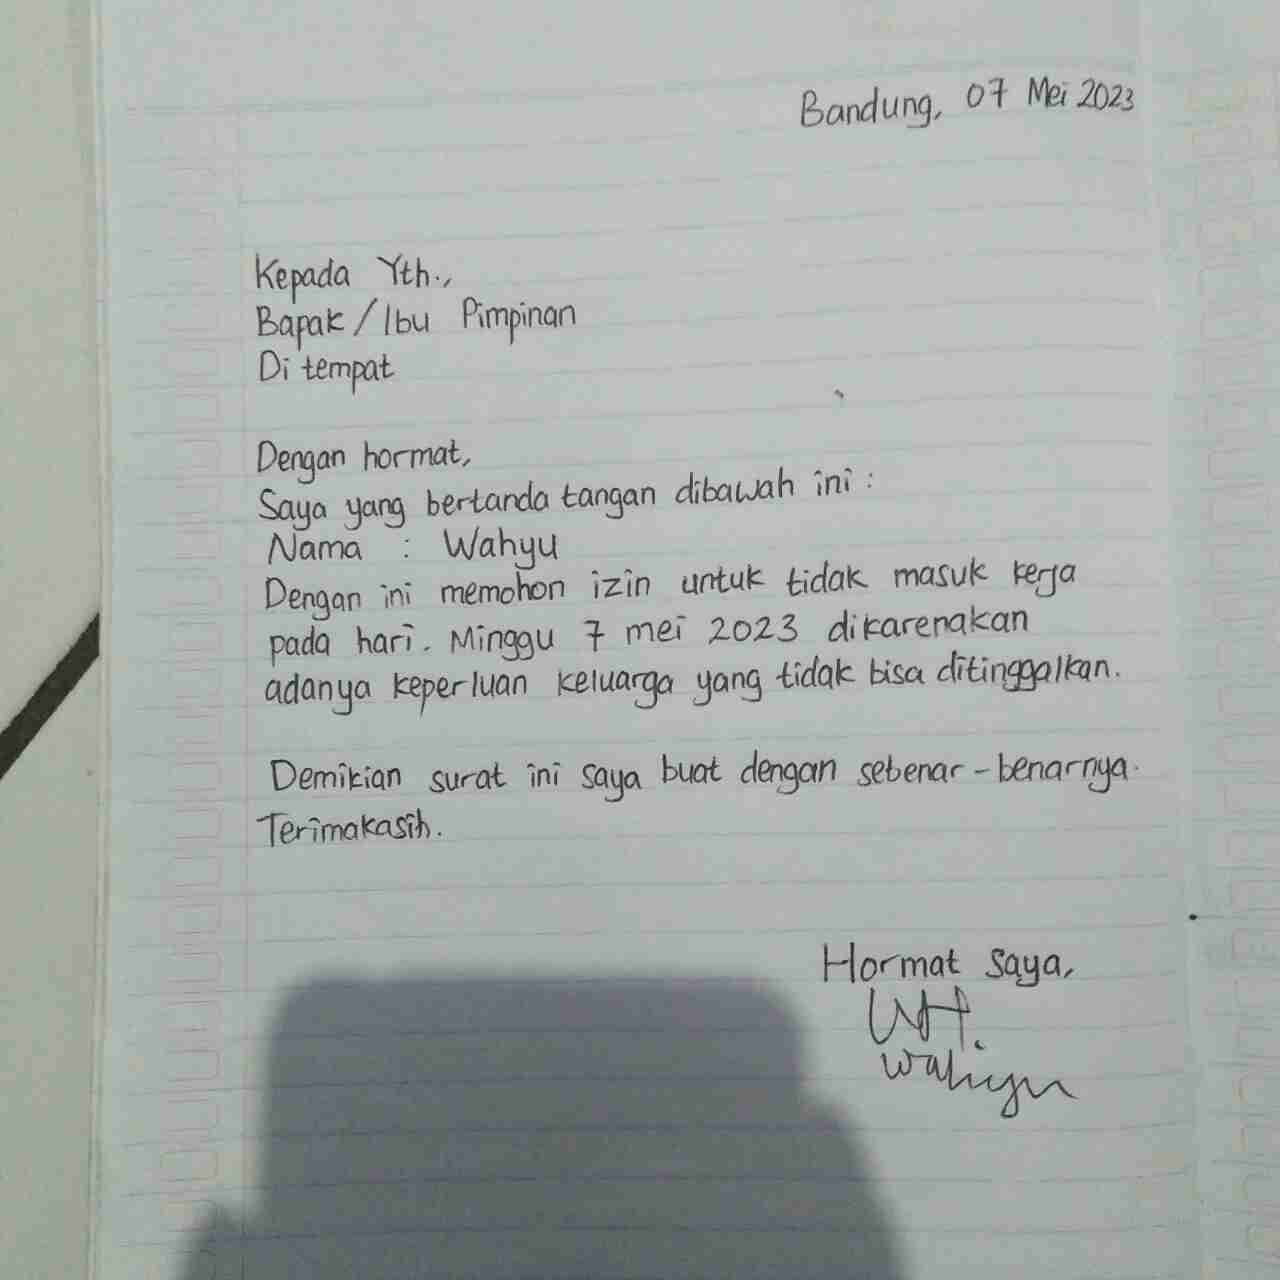 Bandung, 07 Mei 2023
Kepada Yth.,
Bapak/Ibu Pimpinan
Di tempat
Dengan hormat,
Saya yang bertanda tangan dibawah ini :
Nama : Wahyu
Dengan ini memohon izin untuk tidak masuk kerja
pada hari. Minggu 7 mei 2023 dikarenakan
adanya keperluan keluarga yang tidak bisa ditinggalkan.
Demikian surat ini saya buat dengan sebenar-benarnya.
Terimakasih.
Hormat saya,
WH.
Wahyu